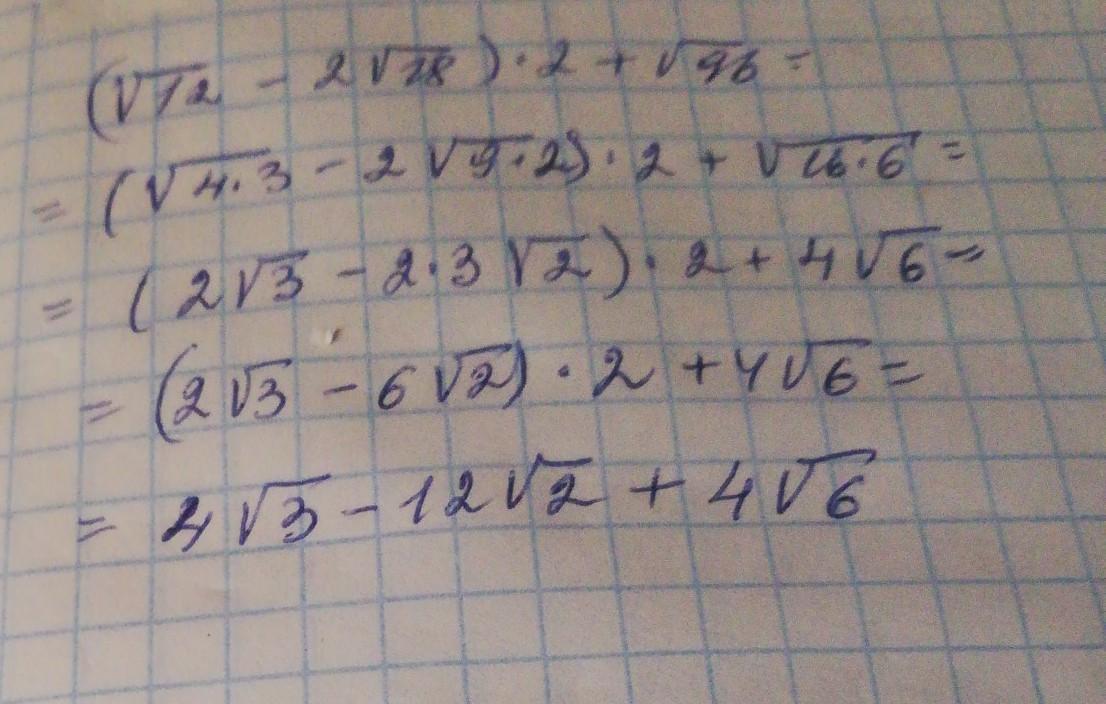 (√12 - 2√18)·2 + √96 =
= (√4·3 - 2√9·2)·2 + √16·6 =
= (2√3 - 2·3√2)·2 + 4√6 =
= (2√3 - 6√2)·2 + 4√6 =
= 4√3 - 12√2 + 4√6